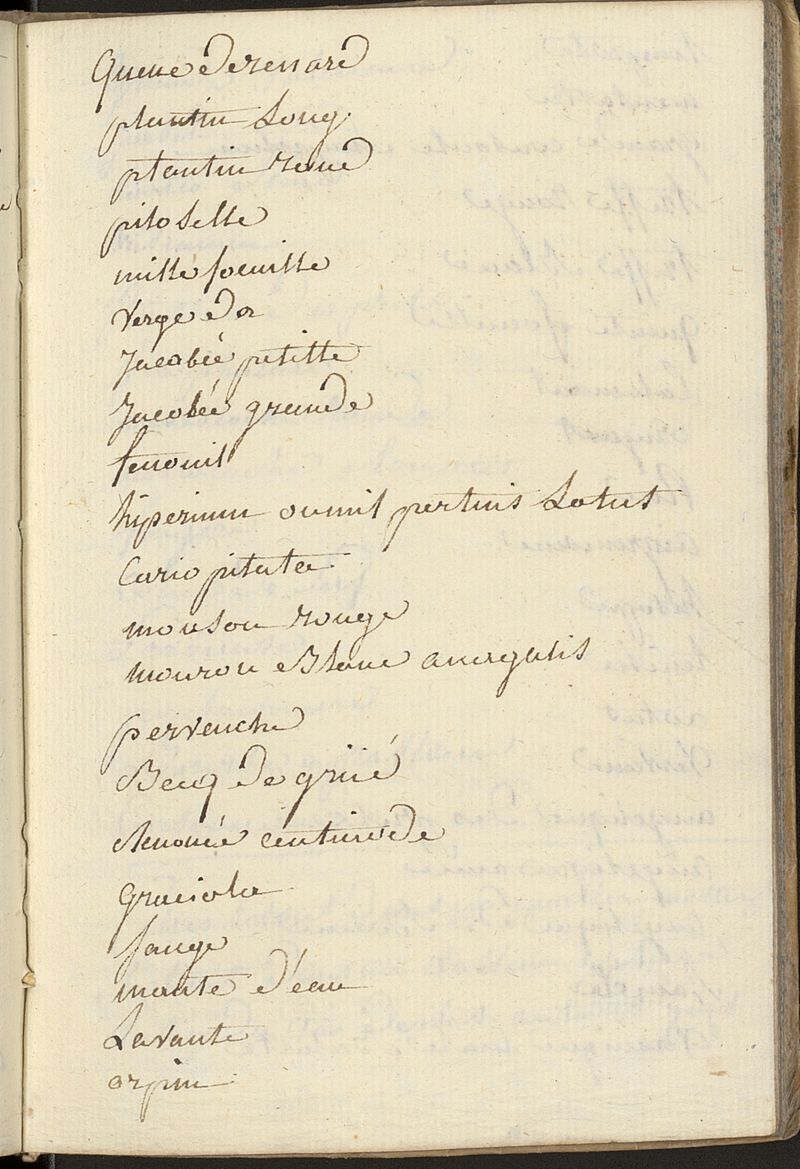 Queue derenard
plantin Long.
plantin rond
piloselle
mille foeuille
Verge dor
Jacobée petitte
Jacobée grande
fenouil
hiperium oumil pertuis Lotus
Cario pilatea
mouron rouge
mouron Blanc anagalis
pervenche
Becq de grüé
Renouée centinode
graciola
sauge
mante d'éau
Lavante
orpin